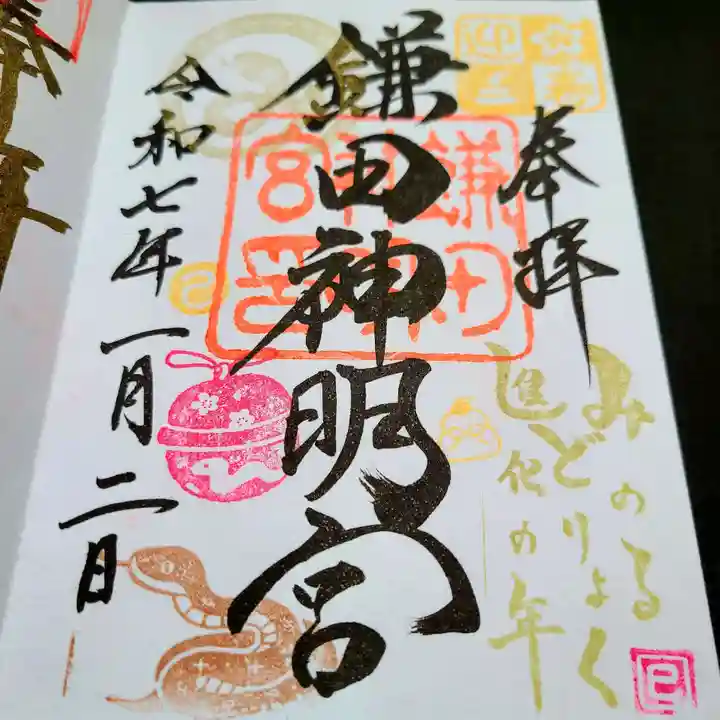 奉拝
鎌田神明宮
令和七年一月二日
みのる
どりょく
進化の年
迎春
巳
巳